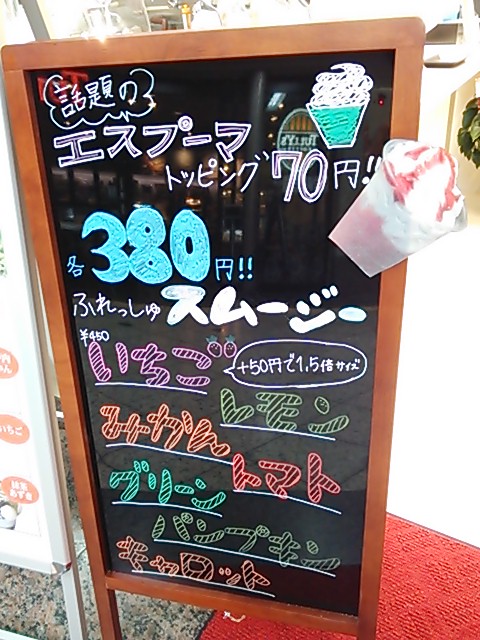 話題の
エスプーマ
トッピング 70円!!
各380円!!
ふれっしゅ スムージー
¥450
いちご
+50円で1.5倍サイズ
みかん
レモン
グリーン
トマト
パンプキン
キャロット
TULLY'S
いちご
抹茶
あずき